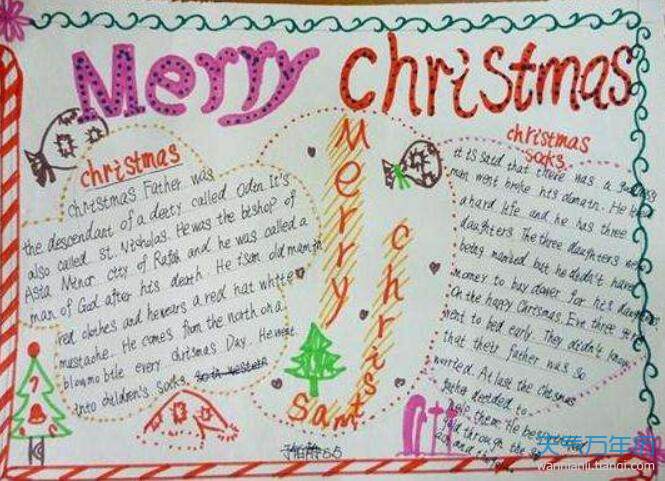 Merry christmas
christmas
christmas Father was
the descendant of a deity called Odin It's
also called St. Nicholas. He was the bishop of
Asia Minor city of and he was called a
man of God after his death. He is an old man in
red clothes and he wears a red hat white
mustache. He comes from the north on a
every christmas Day. He went
into children's socks.
Merry
christ
Santa
christmas
socks
it is said that there was a
man went broke his domain. He
a hard life and he has three
daughters The three daughters were
being married but he didn't have
money to buy dower for his daughters
On the happy Christmas Eve three
went to bed early. They didn't know
that their father was so
worried. At last the
father decided to
help them. He
through the
and
天奇万年历
wannianli.tianqi.com